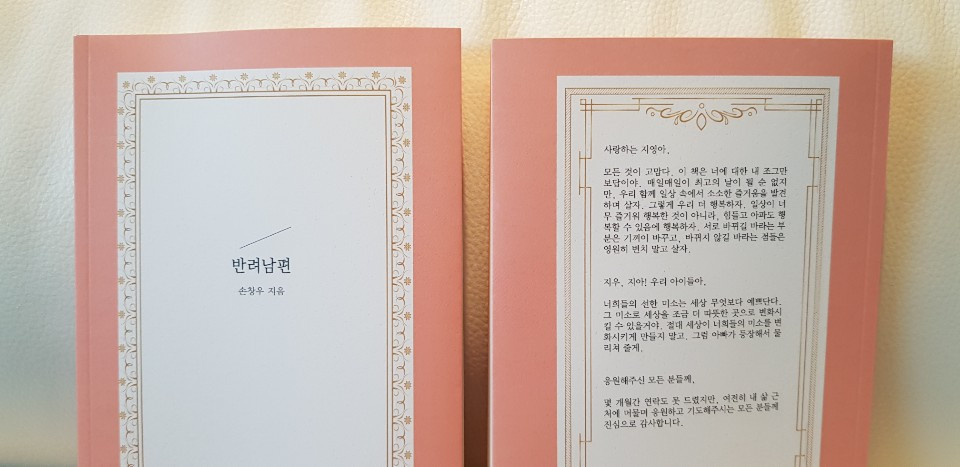 반려남편
손창우 지음
사랑하는 지영아,
모든 것이 고맙다. 이 책은 너에 대한 내 조그만
보답이야. 매일매일이 최고의 날이 될 순 없지
만, 우리 함께 일상 속에서 소소한 즐거움을 발견
하며 살자. 그렇게 우리 더 행복하자. 일상이 너
무 즐거워 행복한 것이 아니라, 힘들고 아파도 행
복할 수 있음에 행복하자. 서로 바뀌길 바라는 부
분은 기꺼이 바꾸고, 바뀌지 않길 바라는 점들은
영원히 변치 말고 살자.
지우, 지아! 우리 아이들아,
너희들의 선한 미소는 세상 무엇보다 예쁘단다.
그 미소로 세상을 조금 더 따뜻한 곳으로 변화시
킬 수 있을거야. 절대 세상이 너희들의 미소를 변
화시키게 만들지 말고. 그럼 아빠가 등장해서 물
리쳐 줄게.
응원해주신 모든 분들께,
몇 개월간 연락도 못 드렸지만, 여전히 내 삶 근
처에 머물며 응원하고 기도해주시는 모든 분들께
진심으로 감사합니다.